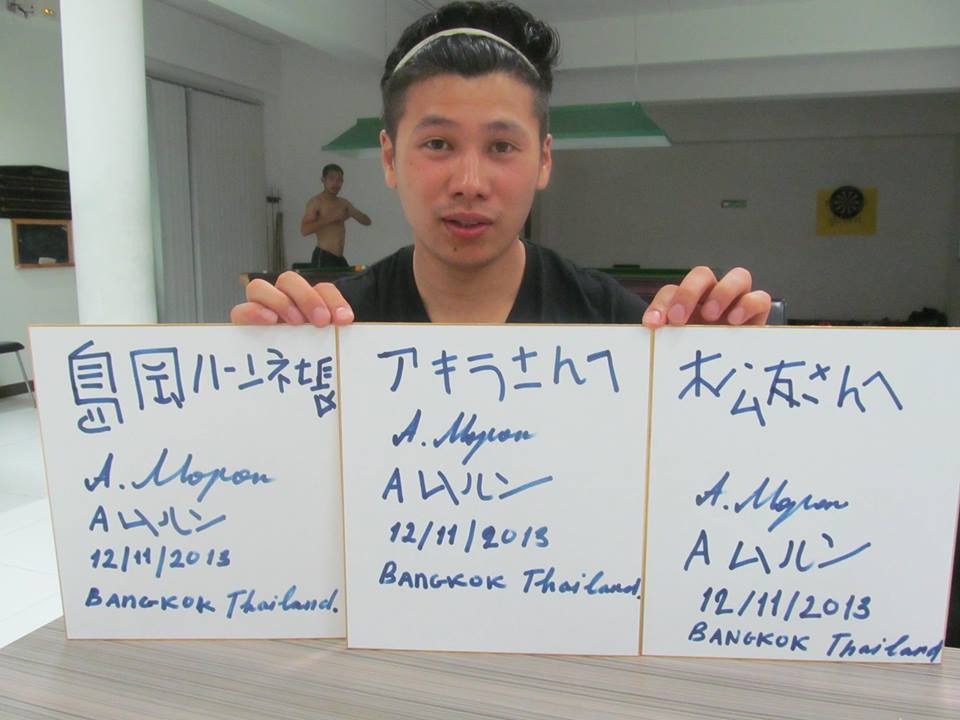 島岡ハーン社長
A. Морон
A ムルン
12/11/2013
BANGKOK Thailand.
アキラさんへ
A. Морон
A ムルン
12/11/2013
BANGKOK Thailand.
松友さんへ
A. Морон
A ムルン
12/11/2013
BANGKOK Thailand